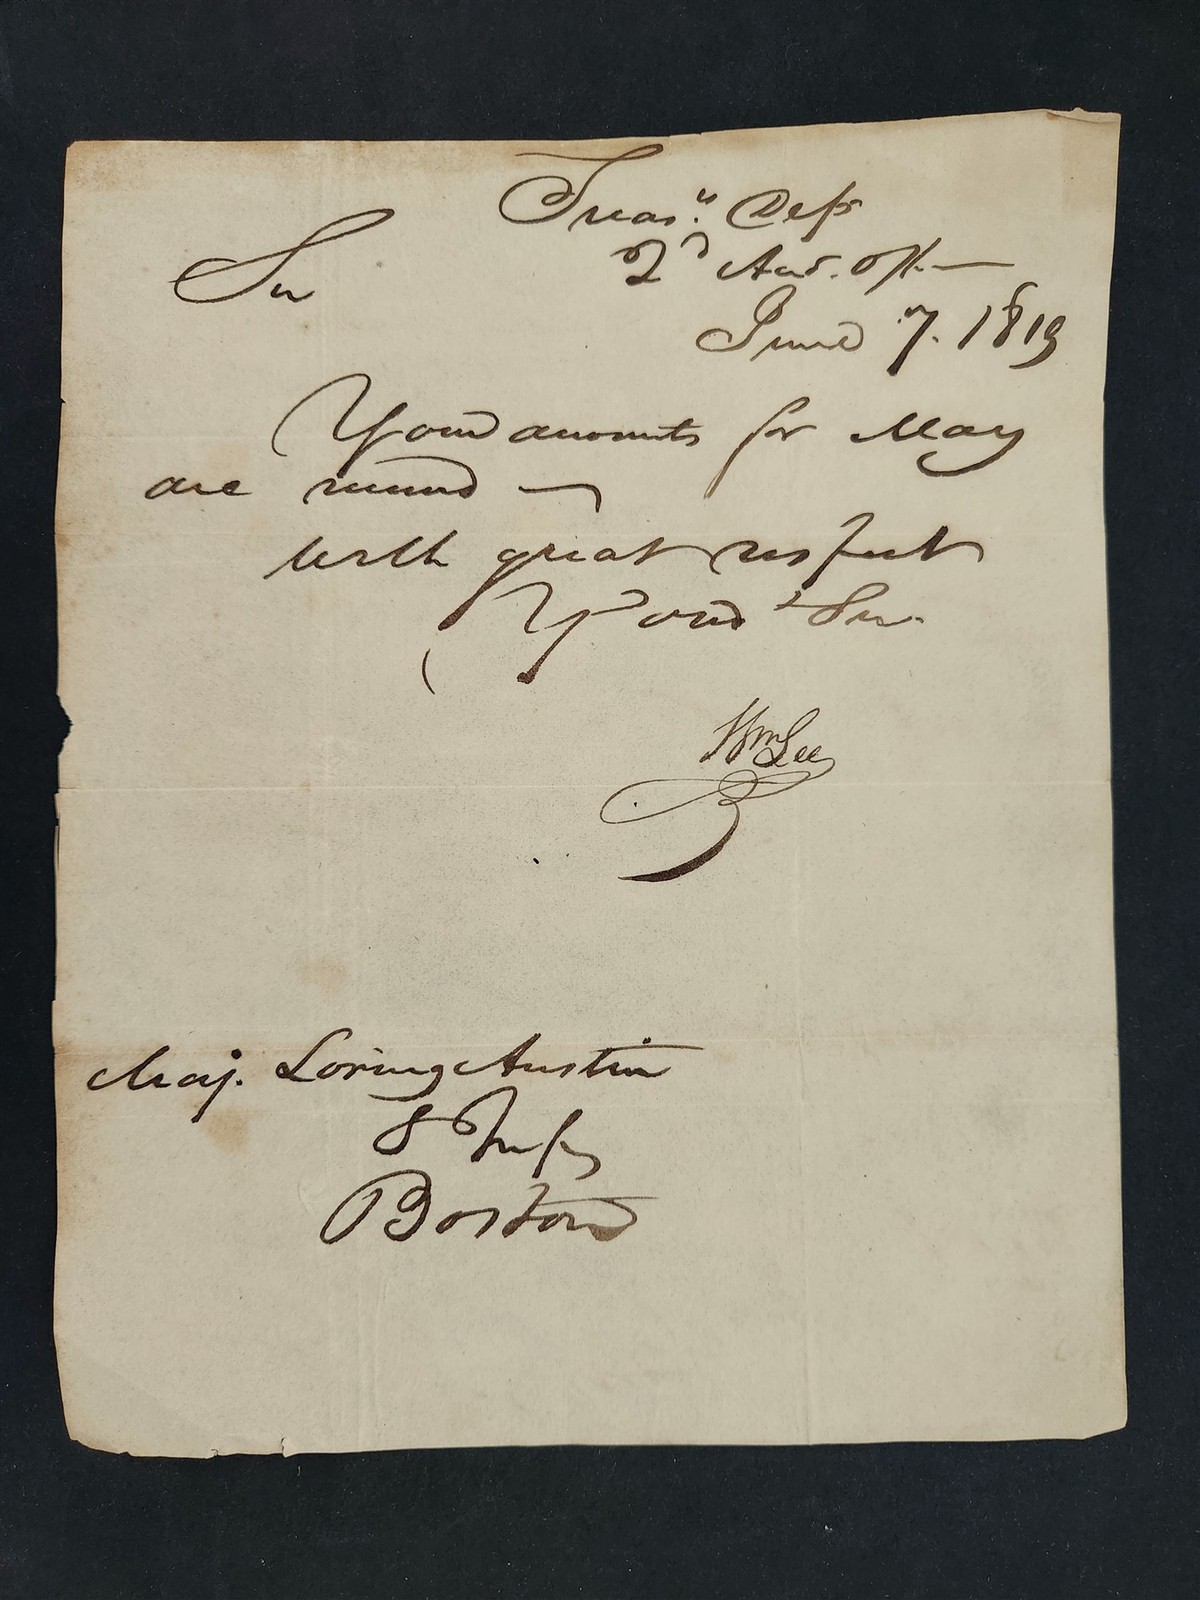 Treas.y Dept
2d Aud. Off.—
Sir
June 7. 1819
Your accounts for May
are recived —
With great respect
Your Sr.
Wm Lee
Maj. Loring Austin
8 Infy
Boston